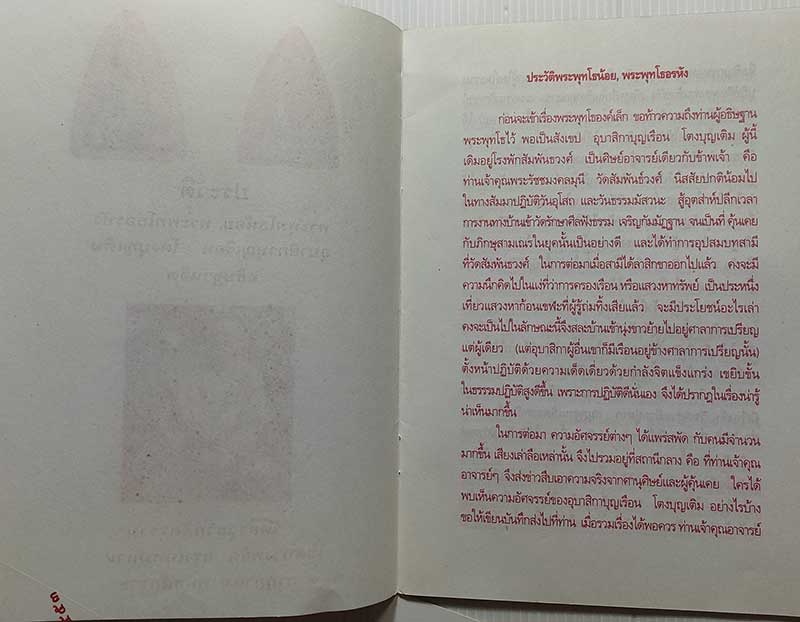 ประวัติพระพุทโธน้อย, พระพุทโธอรหัง
ก่อนจะเข้าเรื่องพระพุทโธองค์เล็ก ขอท้าวความถึงท่านผู้อธิษฐาน
พระพุทโธไว้ พอเป็นสังเขป อุบาสิกาบุญเรือน โตงบุญเติม ผู้นี้
เดิมอยู่โรงพักสัมพันธวงศ์ เป็นศิษย์อาจารย์เดียวกับข้าพเจ้า คือ
ท่านเจ้าคุณพระรัชชมงคลมุนี วัดสัมพันธ์วงศ์ นิสสัยปกติน้อมไป
ในทางสัมมาปฏิบัติวันอุโสถ และวันธรรมมัสวนะ สู้อุตส่าห์ปลีกเวลา
การงานทางบ้านเข้าวัดรักษาศีลฟังธรรม เจริญกัมมัฏฐาน จนเป็นที่ คุ้นเคย
กับภิกษุสามเณรในยุคนั้นเป็นอย่างดี และได้ทำการอุปสมบทสามี
ที่วัดสัมพันธวงศ์ ในการต่อมาเมื่อสามีได้ลาสิกขาออกไปแล้ว คงจะมี
ความนึกคิดไปในแง่ที่ว่าการครองเรือน หรือแสวงหาทรัพย์ เป็นประหนึ่ง
เที่ยวแสวงหาก้อนเขฬะที่ผู้รู้ถ่มทิ้งเสียแล้ว จะมีประโยชน์อะไรเล่า
คงจะเป็นไปในลักษณะนี้จึงสละบ้านเข้านุ่งขาวย้ายไปอยู่ศาลาการเปรียญ
แต่ผู้เดียว (แต่อุบาสิกาผู้อื่นเขาก็มีเรือนอยู่ข้างศาลาการเปรียญนั้น)
ตั้งหน้าปฏิบัติด้วยความเด็ดเดี่ยวด้วยกำลังจิตแข็งแกร่ง เขยิบขั้น
ในธรรมปฏิบัติสูงดีขึ้น เพราะการปฏิบัติดีนั่นเอง จึงได้ปรากฏในเรื่องน่ารู้
น่าเห็นมากขึ้น
ในการต่อมา ความอัศจรรย์ต่างๆ ได้แพร่สพัด กับคนมีจำนวน
มากขึ้น เสียงเล่าลือเหล่านั้น จึงไปรวมอยู่ที่สถานีกลาง คือ ที่ท่านเจ้าคุณ
อาจารย์ๆ จึงส่งข่าวสืบเอาความจริงจากศานุศิษย์และผู้คุ้นเคย ใครได้
พบเห็นความอัศจรรย์ของอุบาสิกาบุญเรือน โตงบุญเติม อย่างไรบ้าง
ขอให้เขียนบันทึกส่งไปที่ท่าน เมื่อรวมเรื่องได้พอควร ท่านเจ้าคุณอาจารย์